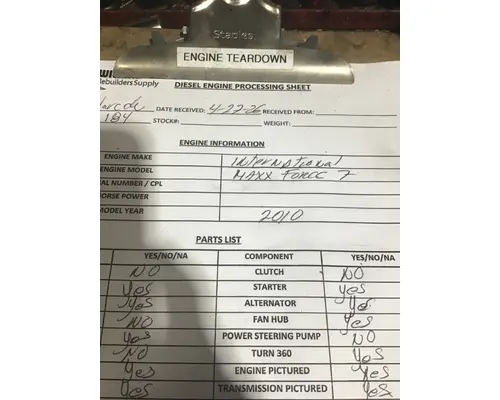 Staples
ENGINE TEARDOWN
ebuilders Supply DIESEL ENGINE PROCESSING SHEET
DATE RECEIVED: 4-22-26 RECEIVED FROM:
184 STOCK#: WEIGHT:
ENGINE INFORMATION
ENGINE MAKE International
ENGINE MODEL MAXX FORCE 7
IAL NUMBER / CPL
ORSE POWER
MODEL YEAR 2010
PARTS LIST
YES/NO/NA COMPONENT YES/NO/NA
NO CLUTCH NO
Yes STARTER Yes
Yes ALTERNATOR Yes
NO FAN HUB Yes
Yes POWER STEERING PUMP NO
NO TURN 360 Yes
Yes ENGINE PICTURED Yes
Yes TRANSMISSION PICTURED Yes